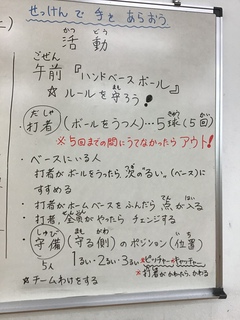 せっけんで 手を あらおう
かつ どう
活 動
ごぜん
午前 『ハンドベースボール』
☆ ルールを守ろう!
だしゃ
打者 (ボールをうつ人)…5球(5回)
※5回までの間にうてなかったら アウト!
・ベースにいる人
打者がボールをうったら 次の るい。(ベース)に
すすめる
・打者がホームベースをふんだら 点が 入る
・打者、全員がやったら チェンジする
しゅび
守備 (守る側) のポジション(位置)
5人 1るい・2るい・3るい・ピッチャー・キャッチャー
※打者がかわったら、かわる
☆チームわけをする